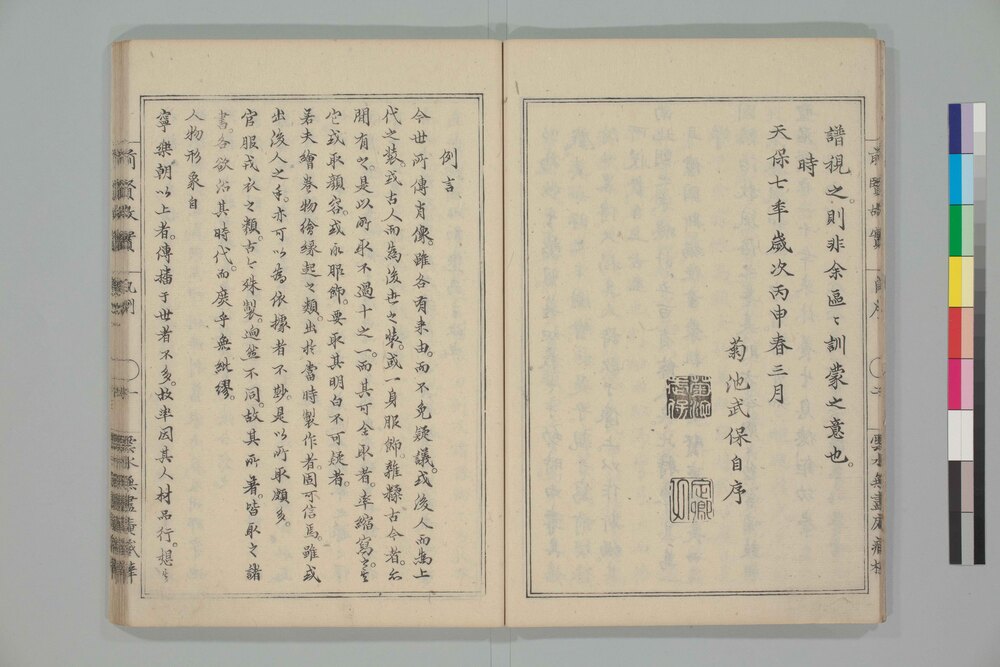 譜視之。則非余區〻訓蒙之意也。
時
天保七年歲次丙申春三月
菊池武保自序
例言
今世所傳肖像。雖各有来由。而不免疑議。或後人而為上
代之裝。或古人而為後世之裝。或一身服飾。雜糅古今者。
間有之。是以所取不過十之一。而其可全取者。率縮寫
它或取顔容。或取服飾。要取其明白不可疑者。
若夫繪卷物繪緣起之類。出於當時製作者。固可信焉。雖或
出後人之手。亦可以為依據者不尠。是以所取頗多。
官服戎衣之類。古今殊製。迥然不同。故其所著皆取之諸
書。各欲沿其時代。而庶乎無紕繆。
人物形象自
寧樂朝以上者。傳播于世者不多。故率因其人材品行。想